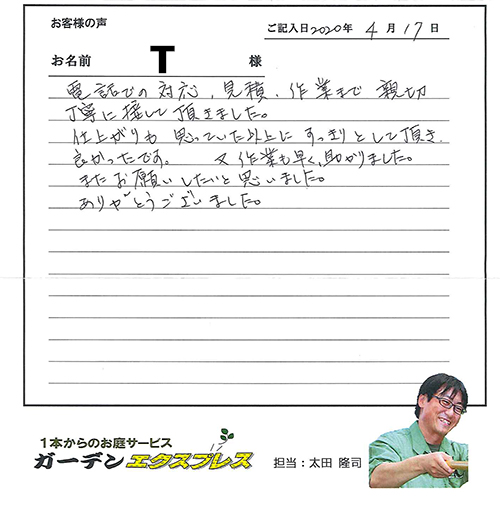 お客様の声
ご記入日2020年 4月 17日
お名前 T 様
電話での対応、見積、作業まで 親切
丁寧に接して頂きました。
仕上がりも 思っていた以上に すっきりとして頂き、
良かったです。 又 作業も早く、助かりました。
またお願いしたいと思いました。
ありがとうございました。
1本からのお庭サービス
ガーデンエクスプレス
担当：太田 隆司